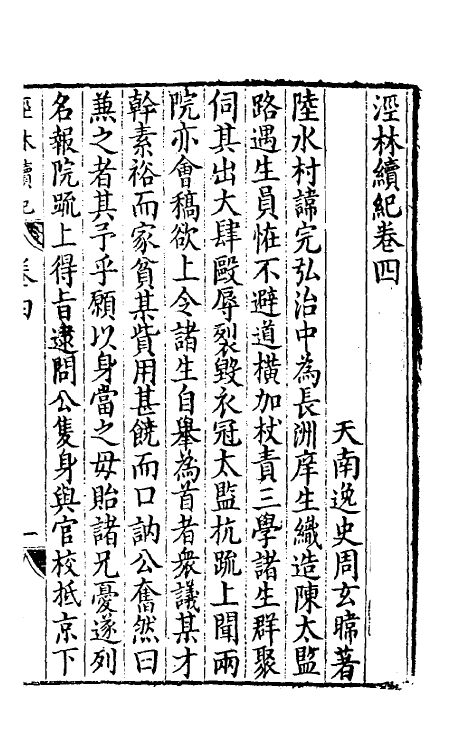 涇林續紀卷四
天南逸史周玄暐著
陸水村諱完弘治中為長洲庠生織造陳太監
路遇生員怪不避道橫加杖責三學諸生群聚
伺其出大肆毆辱裂毀衣冠太監抗疏上聞兩
院亦會稿欲上令諸生自舉為首者衆議某才
幹素裕而家貧某貲用甚饒而口訥公奮然曰
蕪之者其予乎願以身當之毋貽諸兄憂遂列
名報院疏上得旨逮問公隻身與官校抵京下
涇林續紀 卷四 一